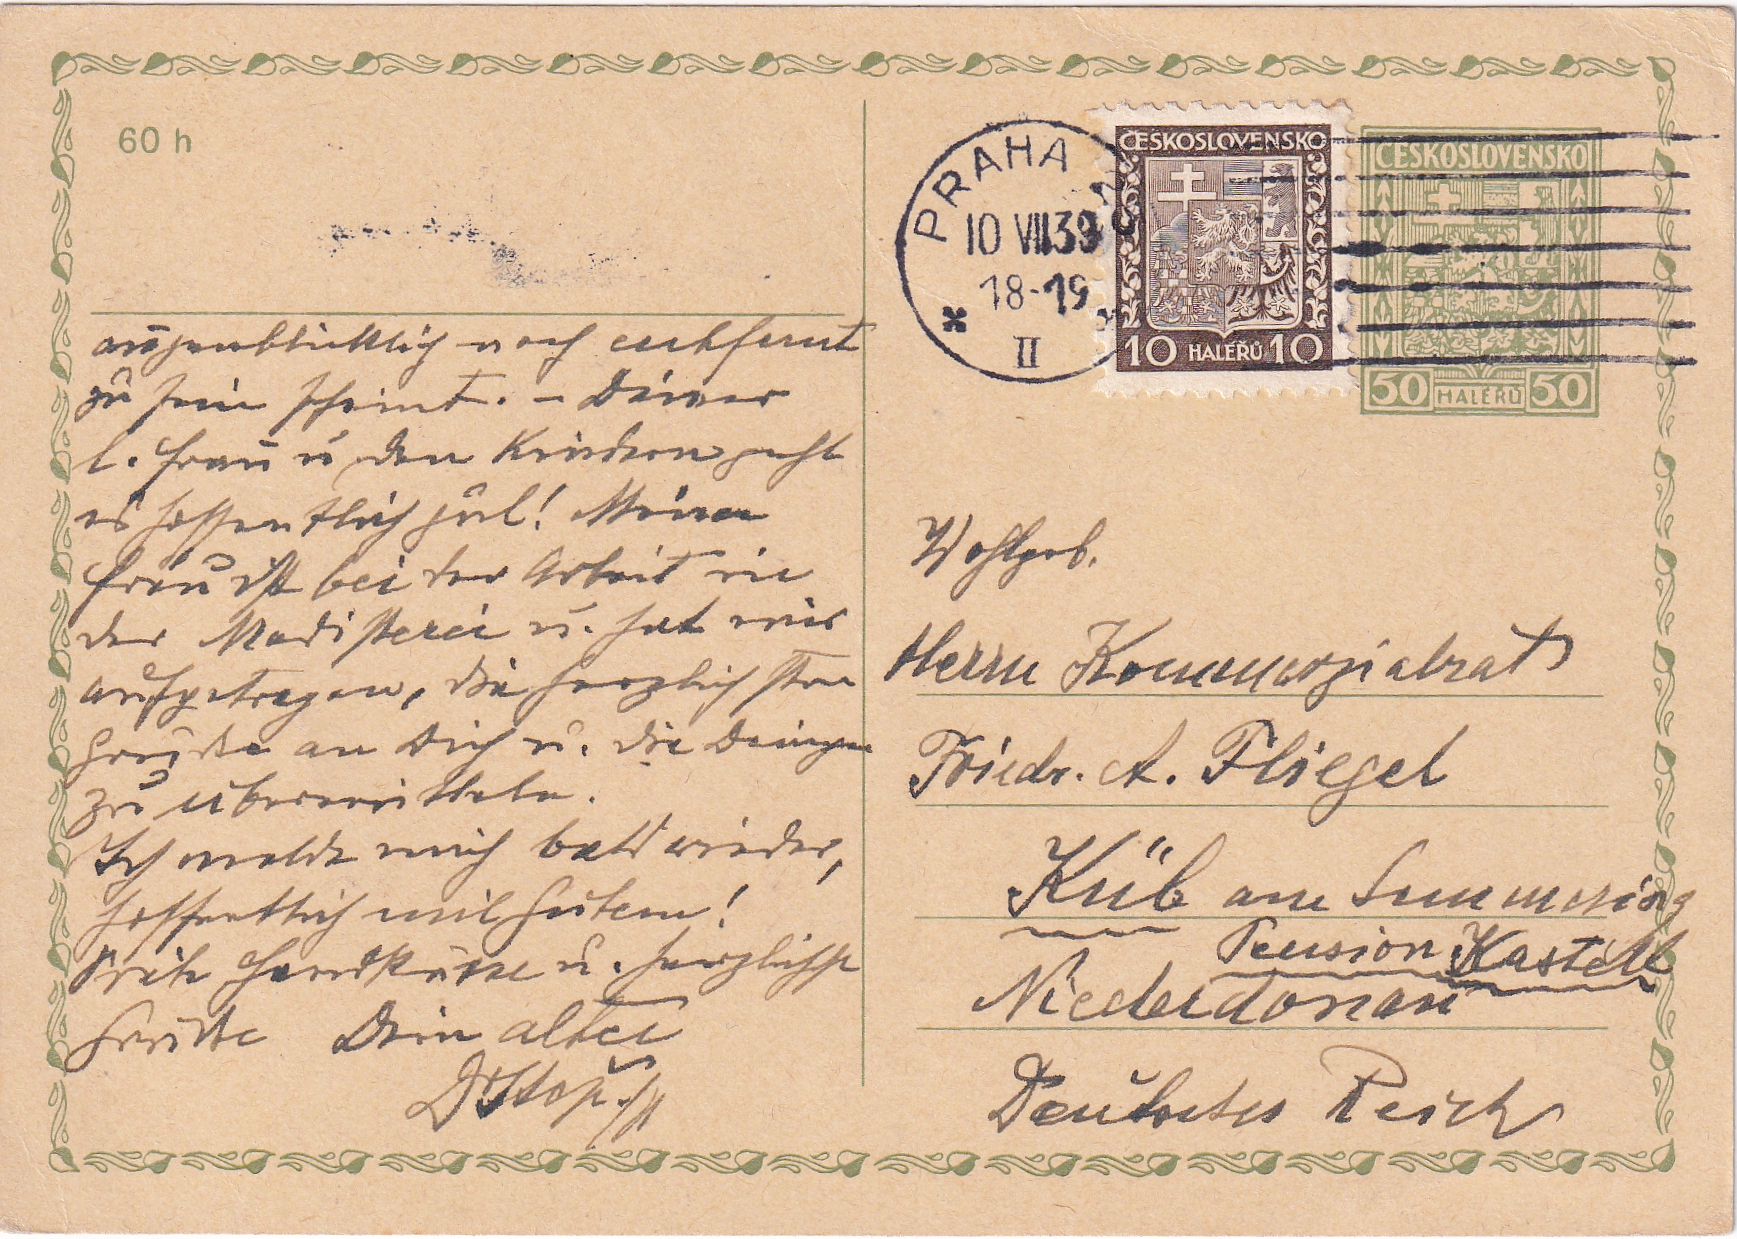 60 h
PRAHA
10 VII 39
18-19
II
ČESKOSLOVENSKO
10 HALÉŘŮ 10
ČESKOSLOVENSKO
50 HALÉŘŮ 50
augenblicklich noch entfernt
zu sein scheint. – Deiner
l. Frau u. den Kindern geht
es hoffentlich gut! Meine
Frau ist bei der Arbeit in
der Modisterei u. hat mir
aufgetragen, die herzlichsten
Grüße an Dich u. die Deinen
zu übermitteln.
Ich melde mich bald wieder,
hoffentlich mit Gutem!
Handküsse u. herzlichst
Grüße Dein alter
Wohlgeb.
Herrn Kommerzialrat
Friedr. A. Fliegel
Küb am Semmering
Pension Kastell
Niederdonau
Deutsches Reich